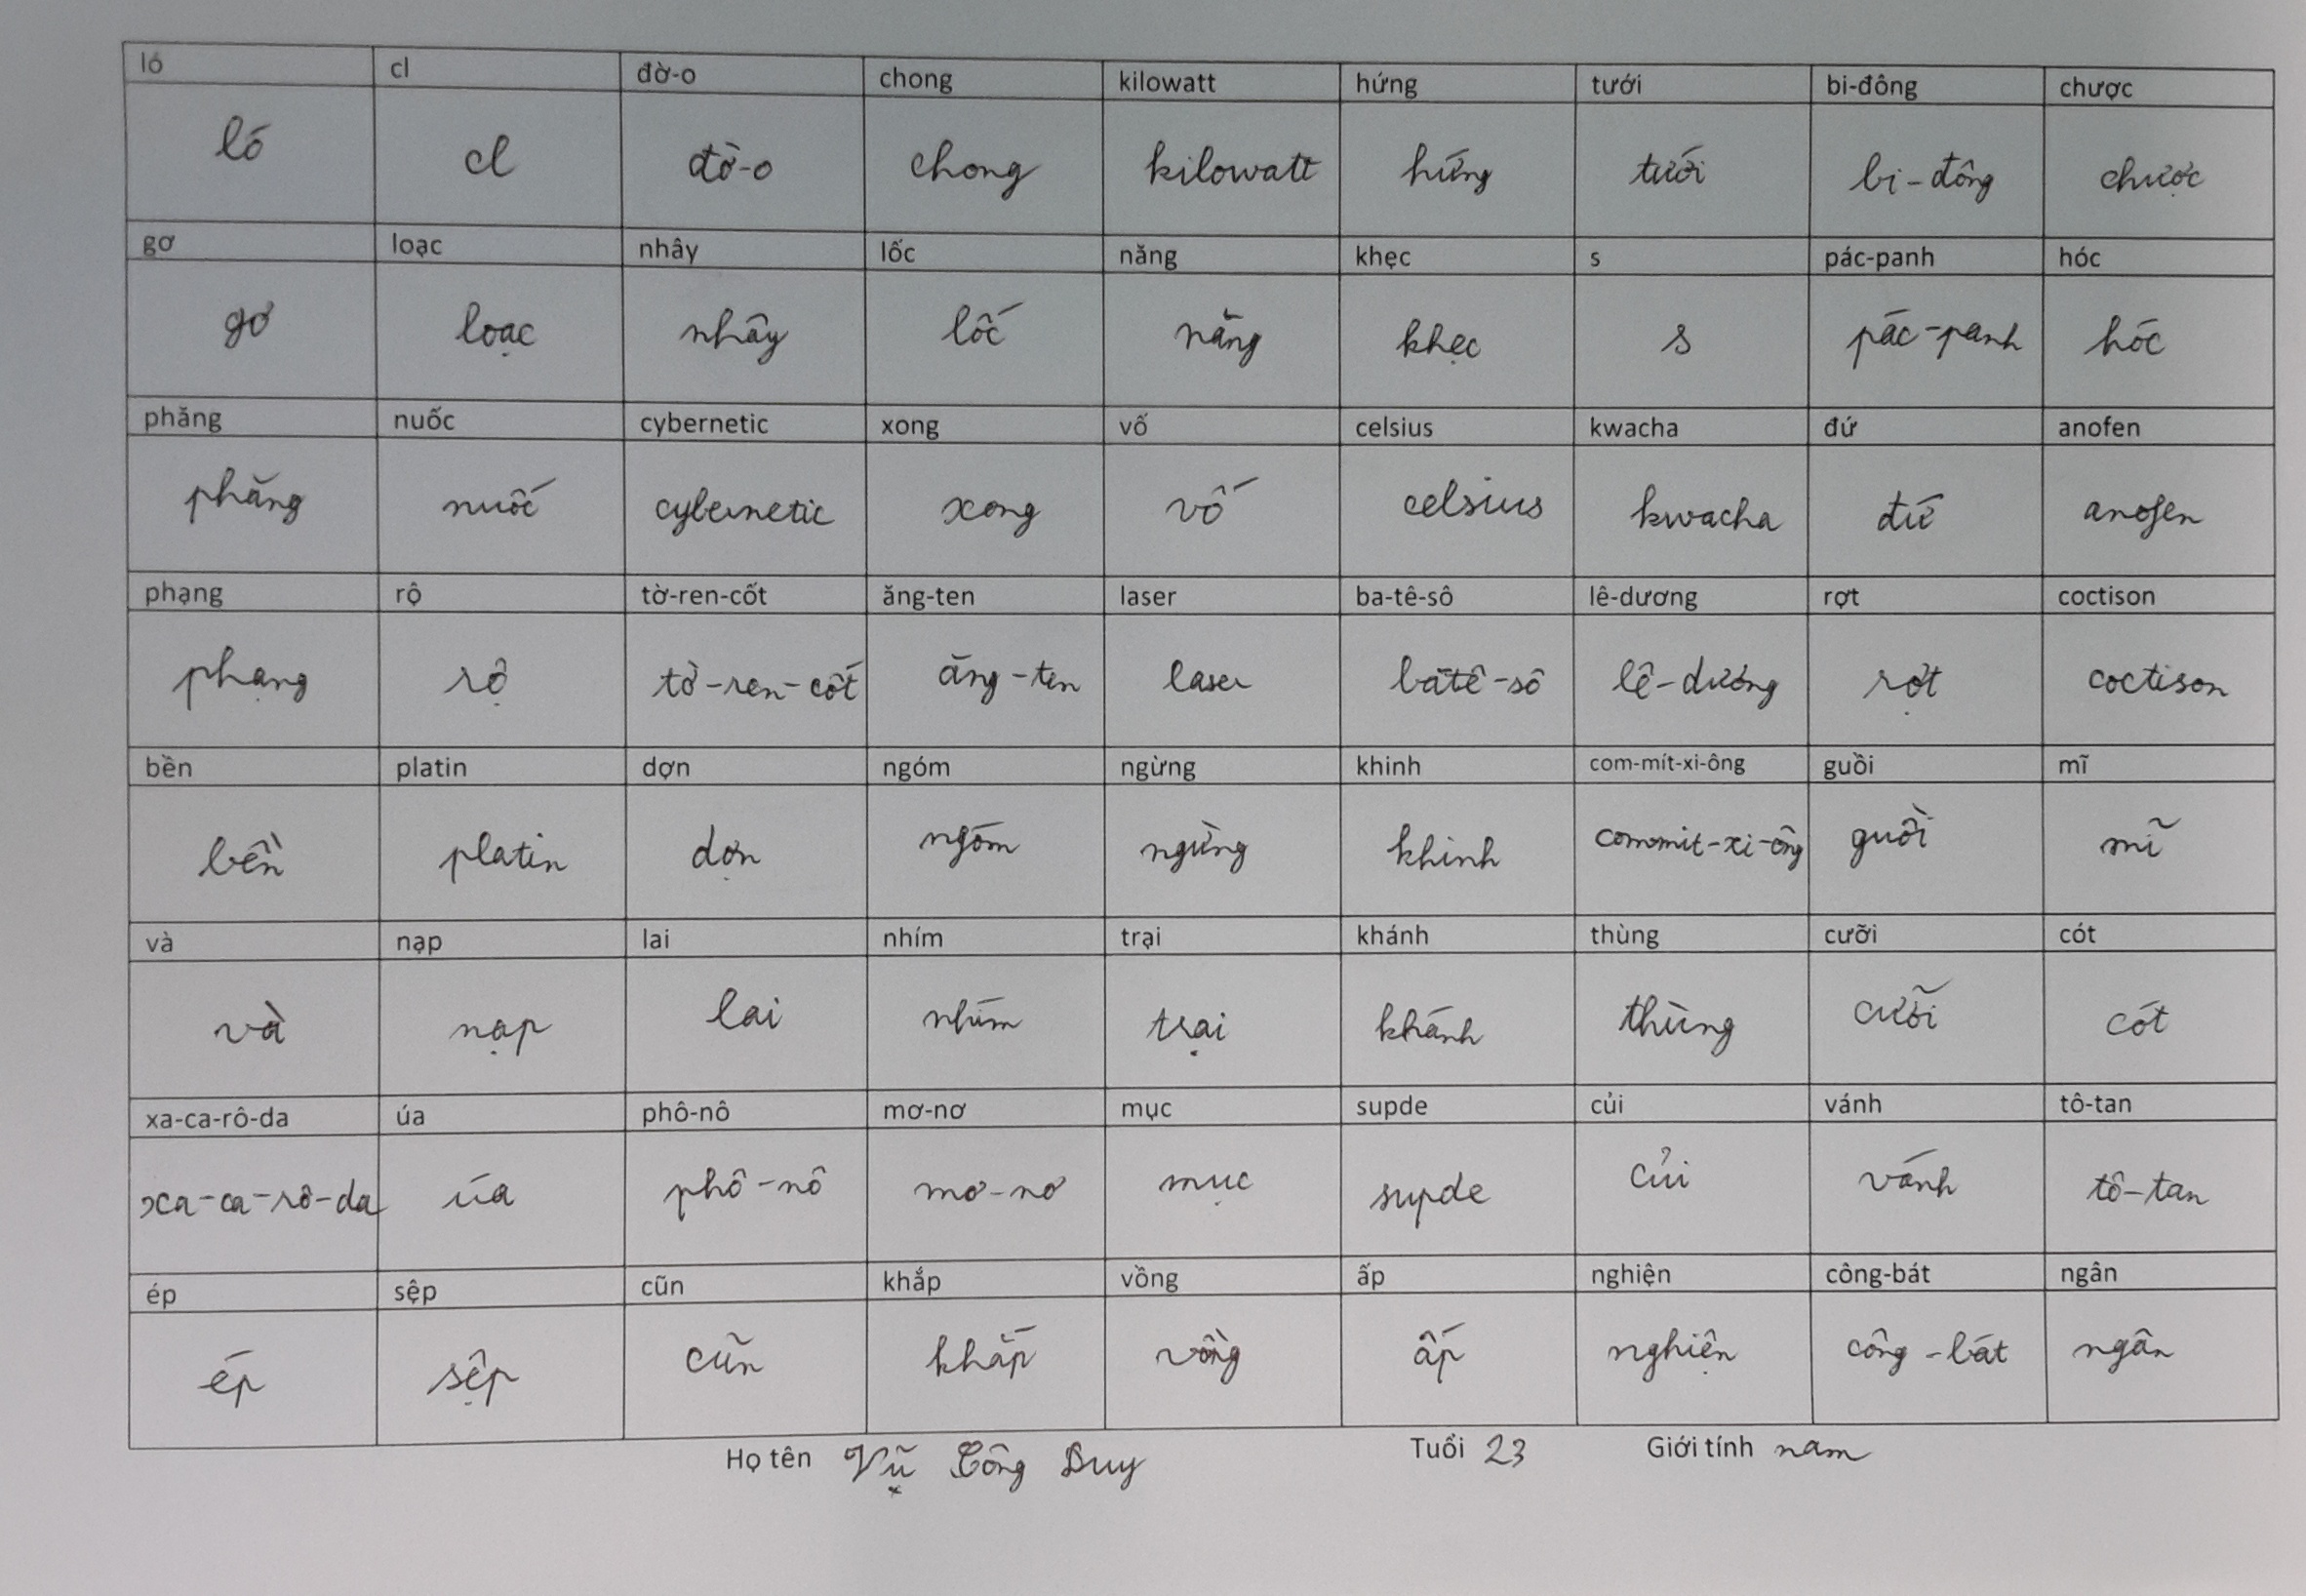 ló cl đờ-o chong kilowatt hứng tưới bi-đông chược
ló cl đờ-o chong kilowatt hứng tưới bi-đông chược
gơ loạc nhây lốc năng khẹc s pác-panh hóc
gơ loạc nhây lốc năng khẹc s pác-panh hóc
phăng nuốc cybernetic xong vố celsius kwacha đứ anofen
phăng nuốc cybernetic xong vố celsius kwacha đứ anofen
phạng rộ tờ-ren-cốt ăng-ten laser ba-tê-sô lê-dương rợt coctison
phạng rộ tờ-ren-cốt ăng-ten laser batê-sô lê-dương rợt coctison
bền platin dợn ngóm ngừng khinh com-mít-xi-ông guồi mĩ
bền platin dợn ngóm ngừng khinh commit-xi-ông guồi mĩ
và nạp lai nhím trại khánh thùng cưỡi cót
và nạp lai nhím trại khánh thùng cưỡi cót
xa-ca-rô-da úa phô-nô mơ-nơ mục supde củi vánh tô-tan
xa-ca-rô-da úa phô-nô mơ-nơ mục supde củi vánh tô-tan
ép sệp cũn khắp vồng ấp nghiện công-bát ngân
ép sệp cũn khắp vồng ấp nghiện công-bát ngân
Họ tên Vũ Công Duy Tuổi 23 Giới tính nam